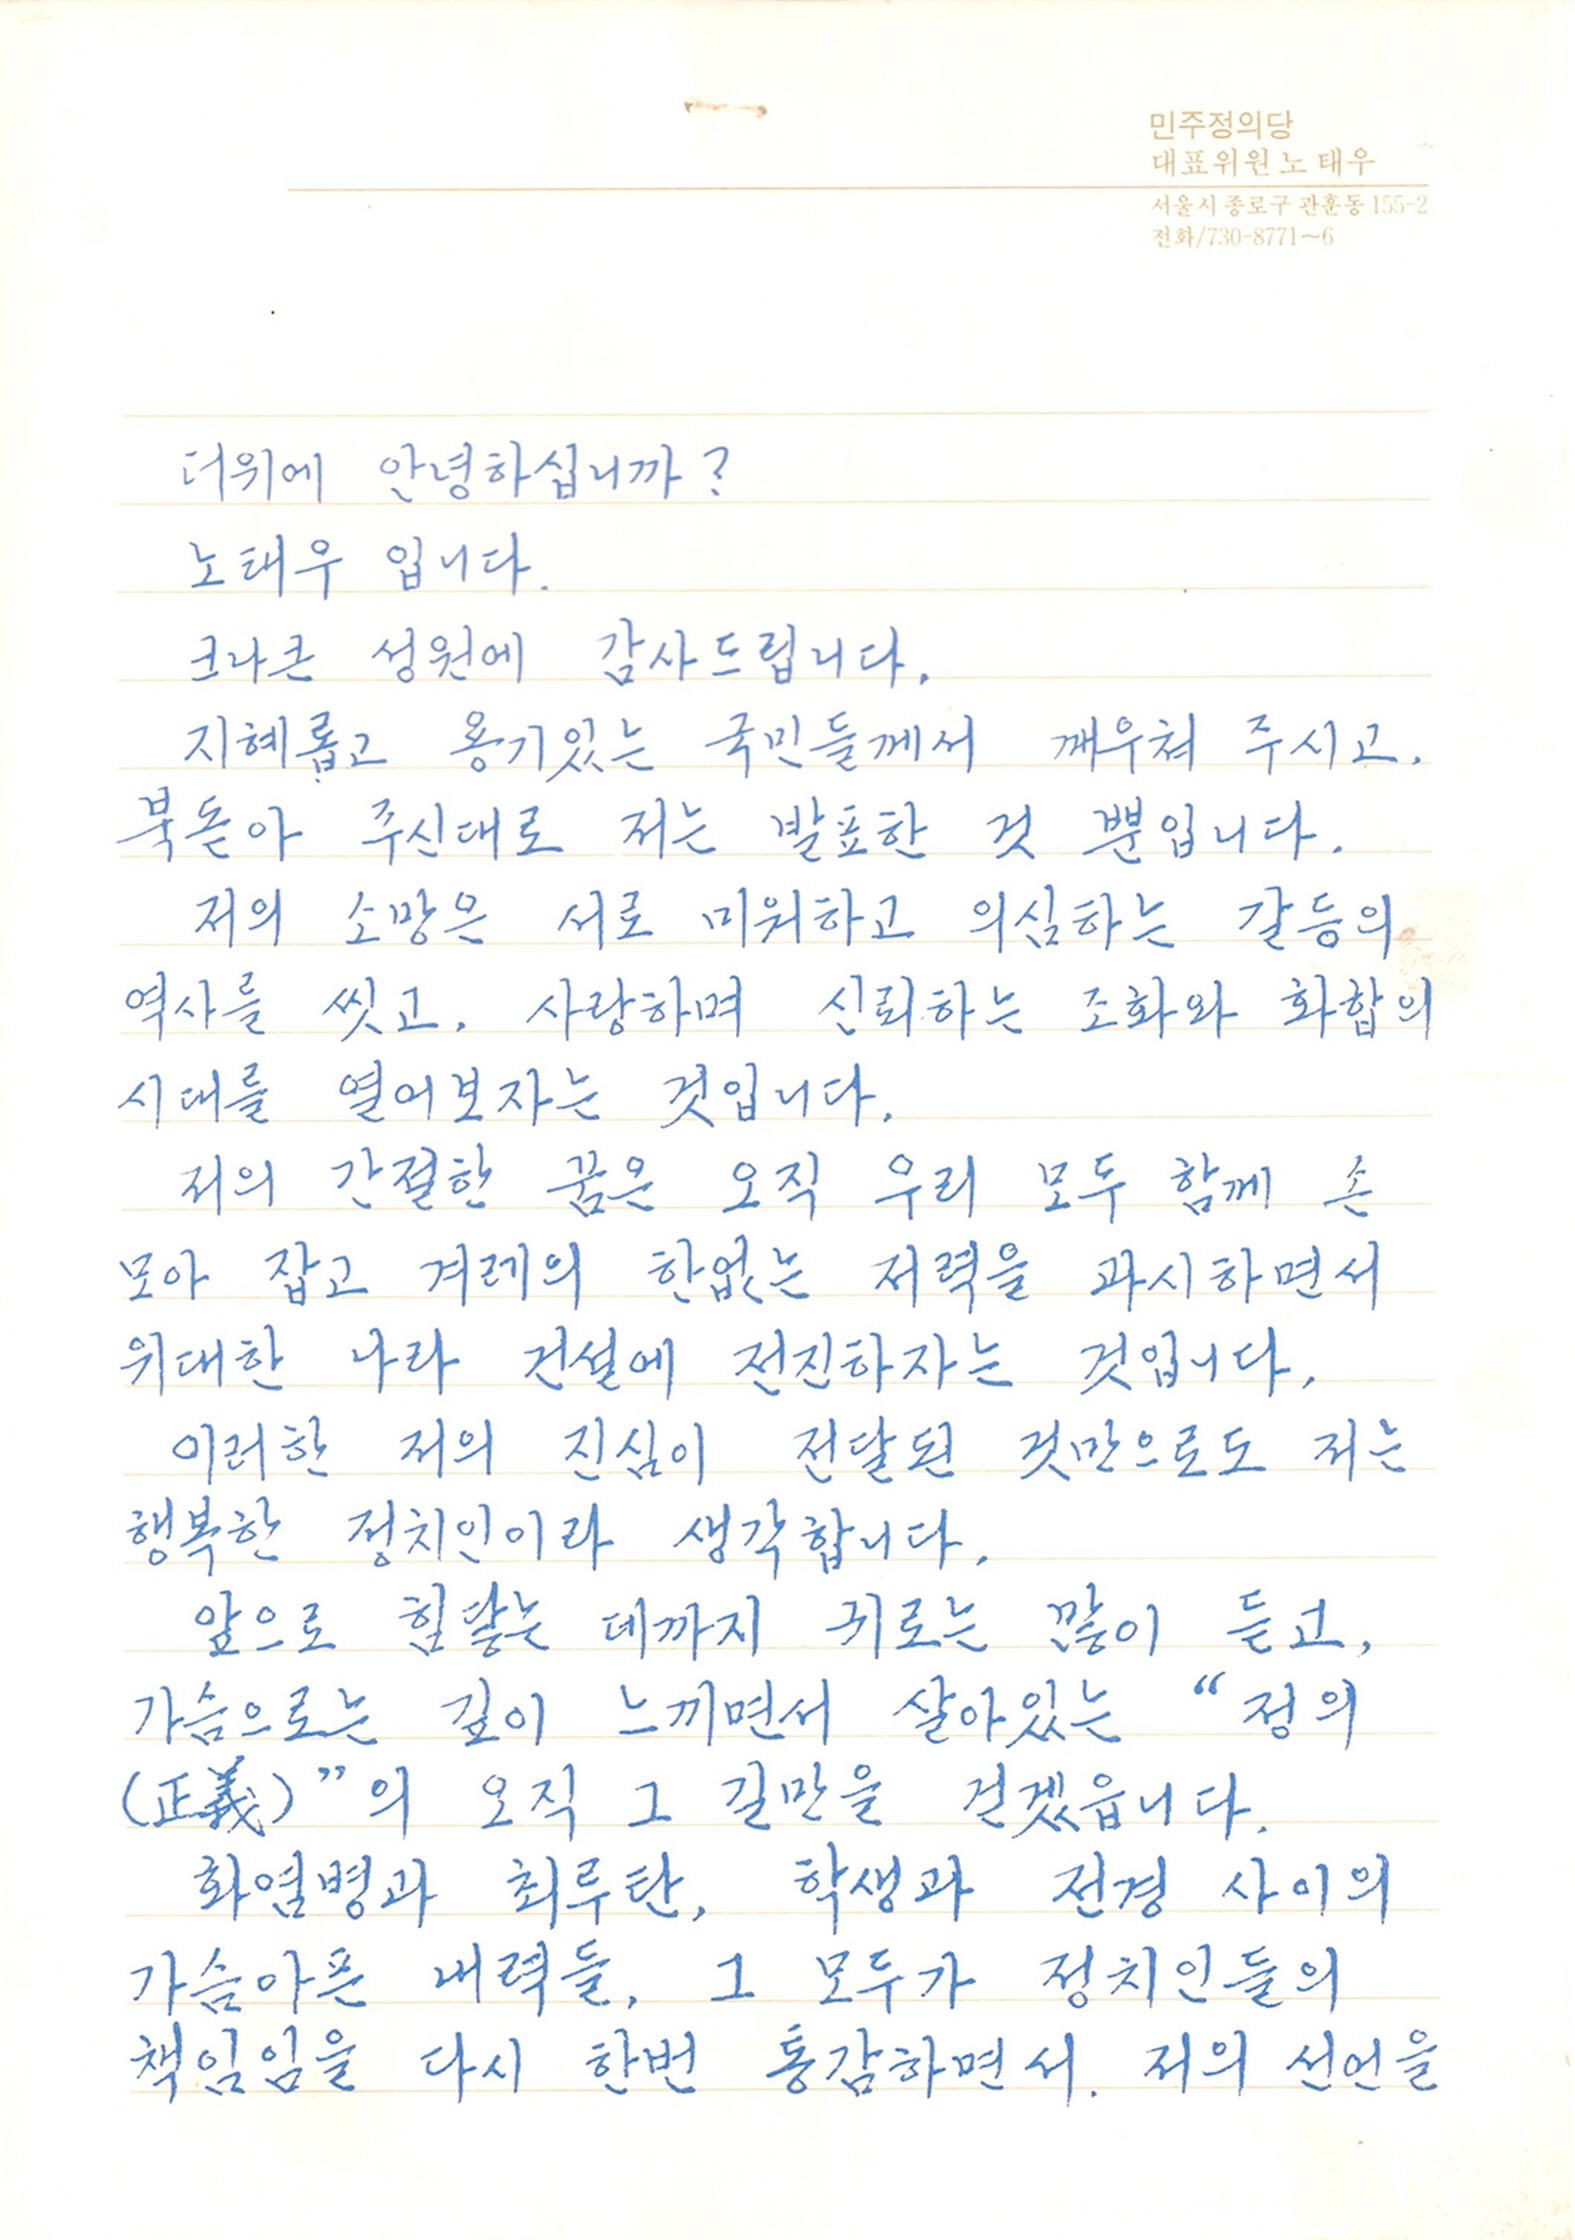 민주정의당
대표위원 노태우
서울시 종로구 관훈동 155-2
전화/730-8771~6
더위에 안녕하십니까?
노태우 입니다.
크나큰 성원에 감사드립니다.
지혜롭고 용기있는 국민들께서 깨우쳐 주시고,
북돋아 주신대로 저는 발표한 것 뿐입니다.
저의 소망은 서로 미워하고 의심하는 갈등의
역사를 씻고, 사랑하며 신뢰하는 조화와 화합의
시대를 열어보자는 것입니다.
저의 간절한 꿈은 오직 우리 모두 함께 손
모아 잡고 겨레의 한없는 저력을 과시하면서
위대한 나라 건설에 전진하자는 것입니다.
이러한 저의 진심이 전달된 것만으로도 저는
행복한 정치인이라 생각합니다.
앞으로 힘닿는 데까지 귀로는 많이 듣고,
가슴으로는 깊이 느끼면서 살아있는 “정의
(正義)”의 오직 그 길만을 걷겠읍니다.
화염병과 최루탄, 학생과 전경 사이의
가슴아픈 내력들, 그 모두가 정치인들의
책임임을 다시 한번 통감하면서, 저의 선언을